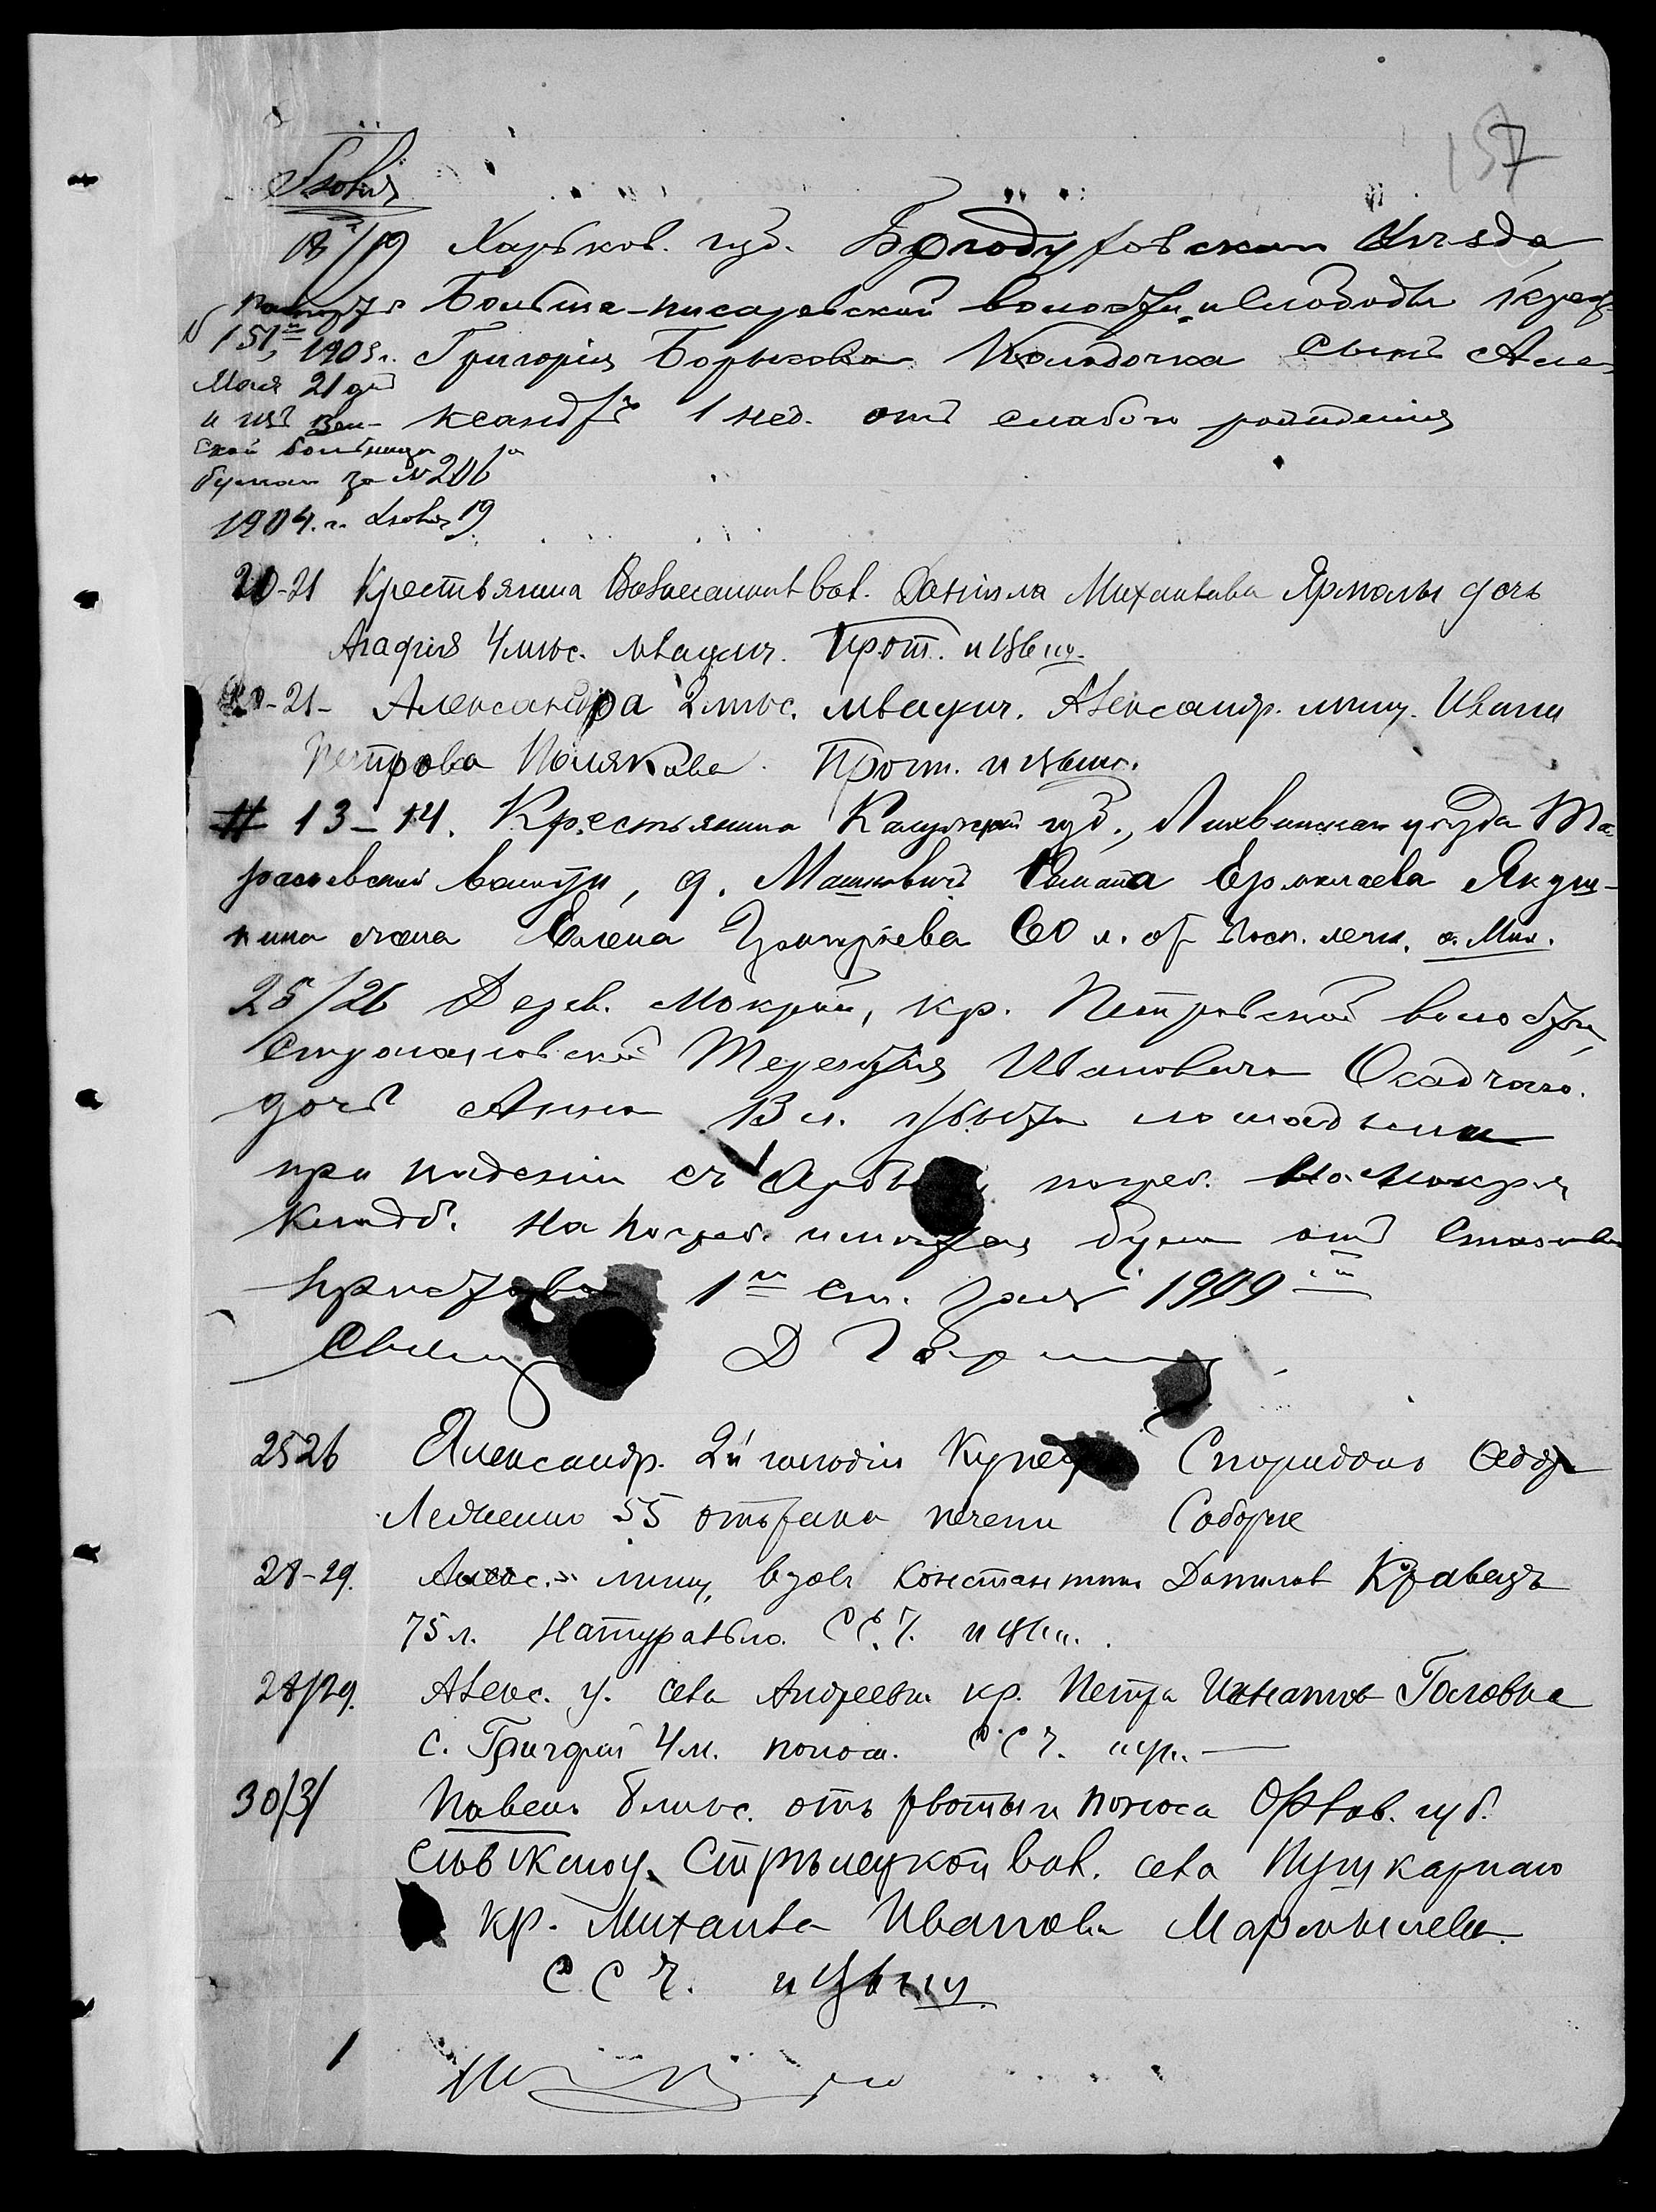 157
Іюль
18/19 Харьков. губ. Богодуховскаго уѣзда
паспортъ Больше-писаревской волости и слободы крест.
№ 151, 1903 г. Григорія Борисова Колодочка сынъ Але-
Мая 21 дня
и изъ Зем- ксандръ 1 нед. отъ слабого рожденія
ской больницы
бумага за № 206
1904. г. Іюля 19
20-21 Крестьянина вол. Даніила Михаилова Ярмолы дочь
Агафія 4 мѣс. младенч. Прот. и Цвѣш.
20-21- Александра 2 мѣс. младенч. Александр. мѣщ. Ивана
Петрова Полякова. Прот. и Цвѣш.
# 13-14. Крестьянина Калужской губ., Лихвинскаго уѣзда Та-
расьевской волости, д. Машковичъ Ермолаева Якуш-
кина жена Елена Григорьева 60 л. от восп. легк. о. Мих.
25/26 Дерев. Мокрой, кр. Петровской волости,
Терентія Ивановича Осадчаго
дочь Анна 13 л. убита лошадьми
при паденіи съ арбы погреб. на Мокрян.
кладб. На погреб. имѣется бумага отъ Станов.
Пристава 1го ст. 1909
Свящ. Д
25 26 Александр. 2й гильдіи Купецъ Спиридонъ Ѳедор.
Леденко 55 отъ рака печени Соборне
28-29. Алекс. мѣщ. вдов. Константинъ Данилов Кравецъ
75 л. Натурально. С С. Ч. и Цвѣш.
28/29. Алекс. у. села Андреевки кр. Петра Игнатов Головка
с. Григорій 4 м. понос. С С Ч.
30/31 Павелъ 8 мѣс. отъ рвоты и поноса Орлов. губ.
Сѣвск. уѣз. Стрѣлецкой вол. села Пушкарнаго
кр. Михаила Иванова Мармылева
С С Ч. и Цвѣш.